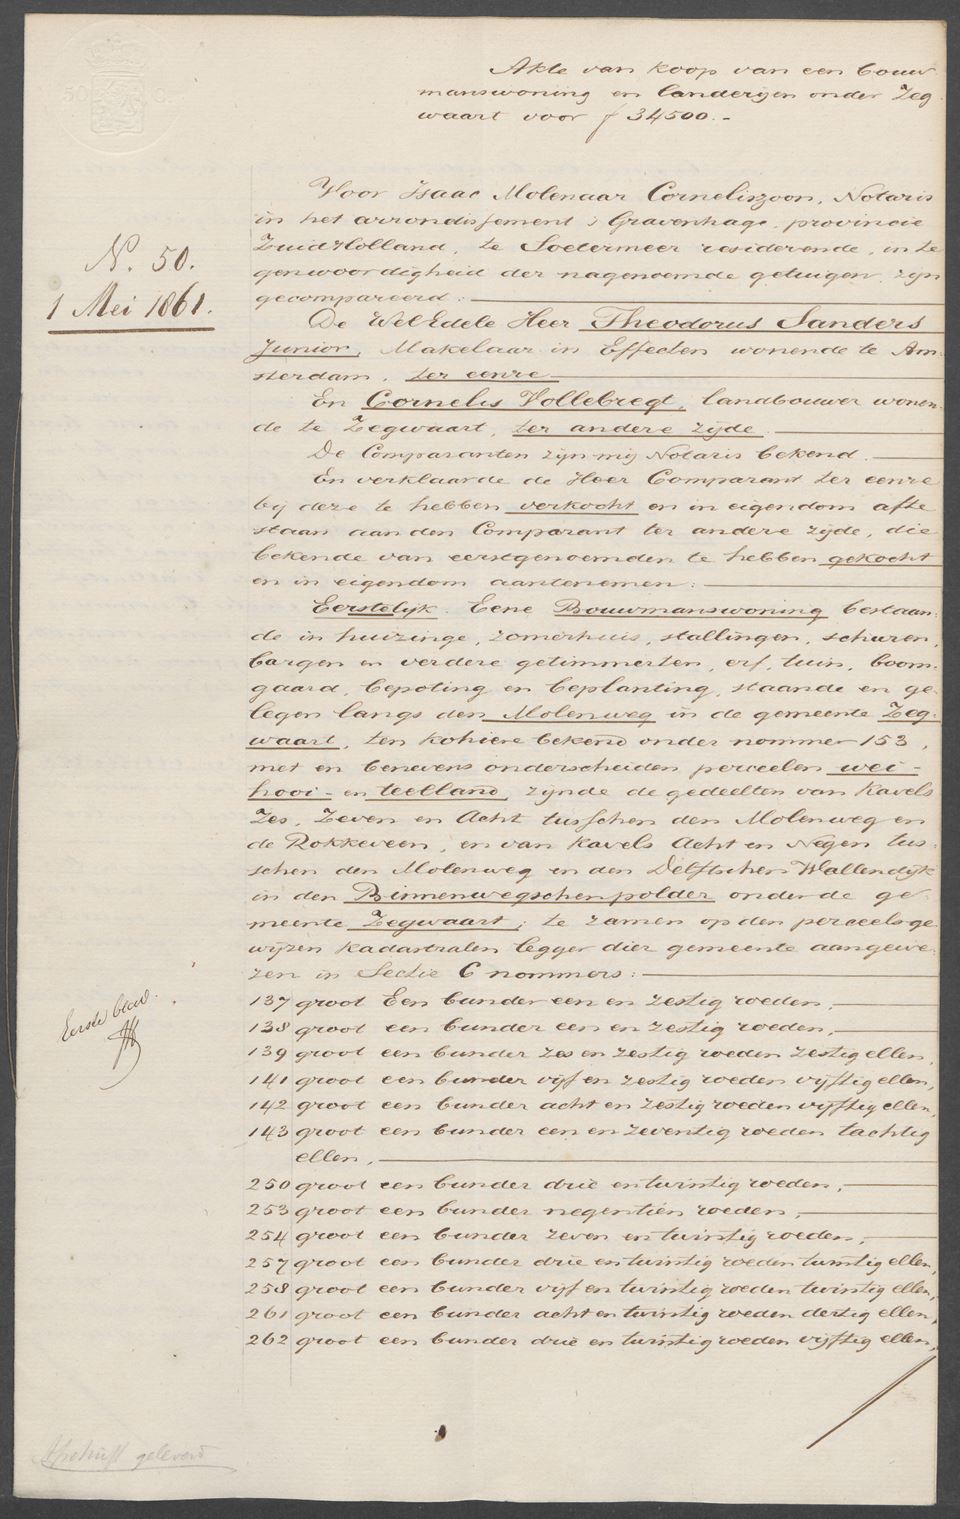 Akte van koop van een bouw
manswoning en landerijen onder Zeg
waart voor f 34500.-
Voor Isaac Molenaar Corneliszoon, Notaris
in het arrondissement 's Gravenhage, provincie
Zuid Holland, te Soetermeer residerende, in te
genwoordigheid der nagenoemde getuigen, zijn
gecompareerd:
N. 50.
1 Mei 1861.
De WelEdele Heer Theodorus Sanders
Junior, Makelaar in Effecten wonende te Am-
sterdam, ter eenre
En Cornelis Vollebregt, landbouwer wonen-
de te Zegwaart, ter andere zijde.
De Comparanten zijn mij Notaris bekend.
En verklaarde de Heer Comparant ter eenre
bij deze te hebben verkocht en in eigendom afte
staan aan den Comparant ter andere zijde, die
bekende van eerstgenoemden te hebben gekocht
en in eigendom aantenemen:
Eerstelijk. Eene Bouwmanswoning bestaan-
de in huizinge, zomerhuis, stallingen, schuren,
bargen en verdere getimmerten, erf, tuin, boom-
gaard, bepoting en beplanting, staande en ge-
legen langs den Molenweg in de gemeente Zeg-
waart, ten kohiere bekend onder nommer 153,
met en benevens onderscheiden perceelen wei-
hooi- en teelland, zijnde de gedeelten van Kavels
Zes, Zeven en Acht tusschen den Molenweg en
de Rokkeveen, en van Kavels Acht en Negen tus-
schen den Molenweg en den Delftschen Wallendijk
in den Binnenwegschen polder onder de ge-
meente Zegwaart; te zamen op den perceelsge
wijzen kadastralen legger dier gemeente aangewe-
zen in Sectie C nommers:
137 groot Een bunder een en zestig roeden,
138 groot een bunder een en zestig roeden,
139 groot een bunder zes en zestig roeden zestig ellen,
141 groot een bunder vijf en zestig roeden vijftig ellen,
142 groot een bunder acht en zestig roeden vijftig ellen,
143 groot een bunder een en zeventig roeden tachtig
ellen,
250 groot een bunder drie en twintig roeden,
253 groot een bunder negentien roeden,
254 groot een bunder zeven en twintig roeden,
257 groot een bunder drie en twintig roeden twintig ellen,
258 groot een bunder vijf en twintig roeden twintig ellen,
261 groot een bunder acht en twintig roeden dertig ellen,
262 groot een bunder drie en twintig roeden vijftig ellen,
Eerste blad.
Afschrift geleverd